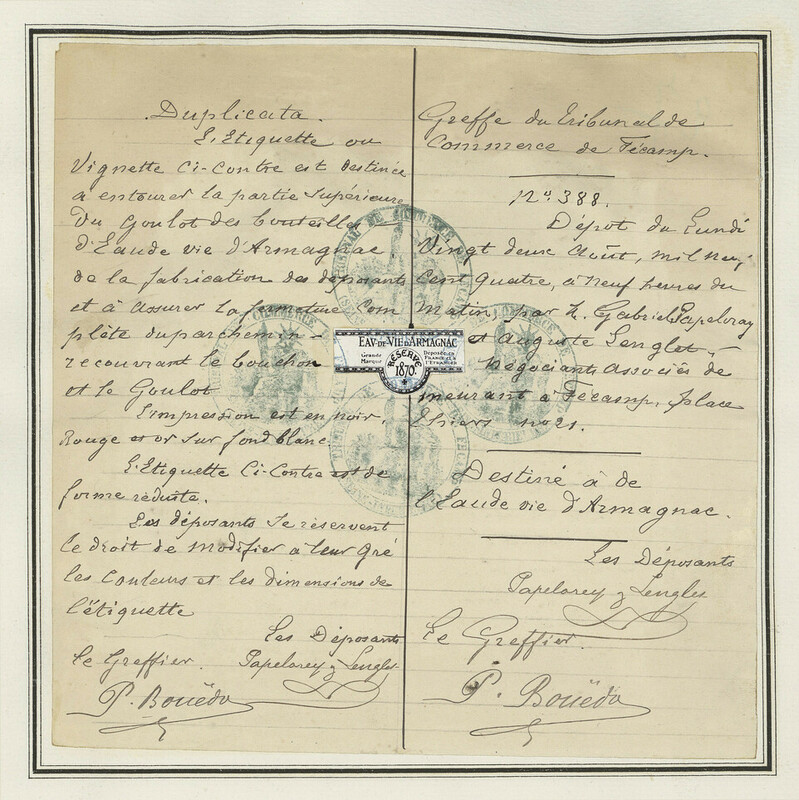 Duplicata.
L'Etiquette ou
Vignette Ci-Contre est destinée
à entourer la partie Supérieure
du Goulot des bouteilles
d'Eau de vie d'Armagnac
de la fabrication des déposants
et à assurer la fermeture Com
plète du parchemin -
recouvrant le bouchon
et le Goulot
L'impression est en noir,
Rouge et or sur fond blanc
L'Etiquette Ci-Contre est de
forme réduite.
Les déposants se réservent
le droit de modifier à leur gré
les Couleurs et les dimensions de
l'étiquette
Les Déposants
Le Greffier. Papelorey & Lenglet
P. Bouëdo
EAV-DE-VIE D'ARMAGNAC
Grande Marque
RÉSERVE
1870.
Déposée en FRANCE et à l'ÉTRANGER
Greffe du Tribunal de
Commerce de Fécamp.
No. 388.
Dépot du Lundi
Vingt deux Août, mil neuf
Cent quatre, à neuf heures du
Matin, par Gabriel Papelorey
et Auguste Lenglet,
Négociants Associés de
meurant à Fécamp, place
Thiers no 21.
Destiné à de
l'Eau de vie d'Armagnac.
Les Déposants
Papelorey & Lenglet
Le Greffier.
P. Bouëdo